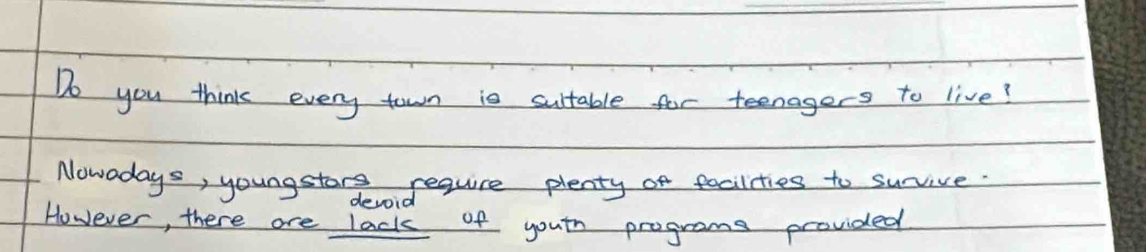 Do you think every town is suitable for teenagers to live?
Nowadays, youngstars require plenty of facilities to survive.
devoid
However, there are lack of youth programs provided